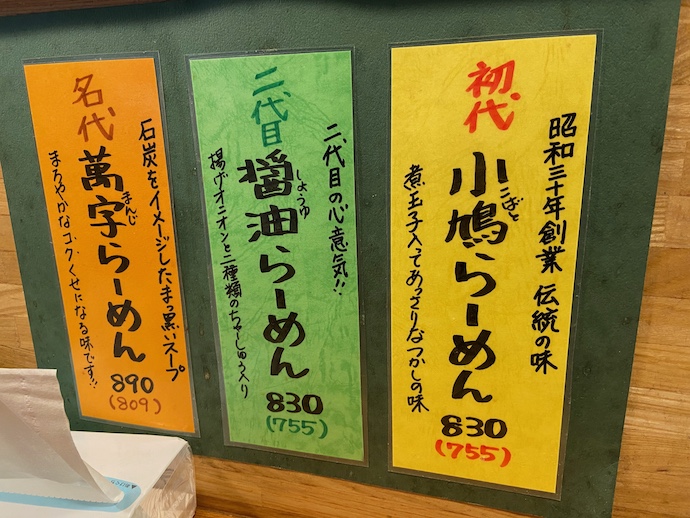 昭和三十年創業 伝統の味
初代
小鳩らーめん
こばと
煮玉子入ってあっさりなつかしの味
830
(755)
二代目の心意気!!
二代目
醤油らーめん
しょうゆ
揚げオニオンと二種類のちゃーしゅう入り
830
(755)
石炭をイメージしたまっ黒いスープ
名代
萬字らーめん
まんじ
まろやかなコクくせになる味です!!
890
(809)